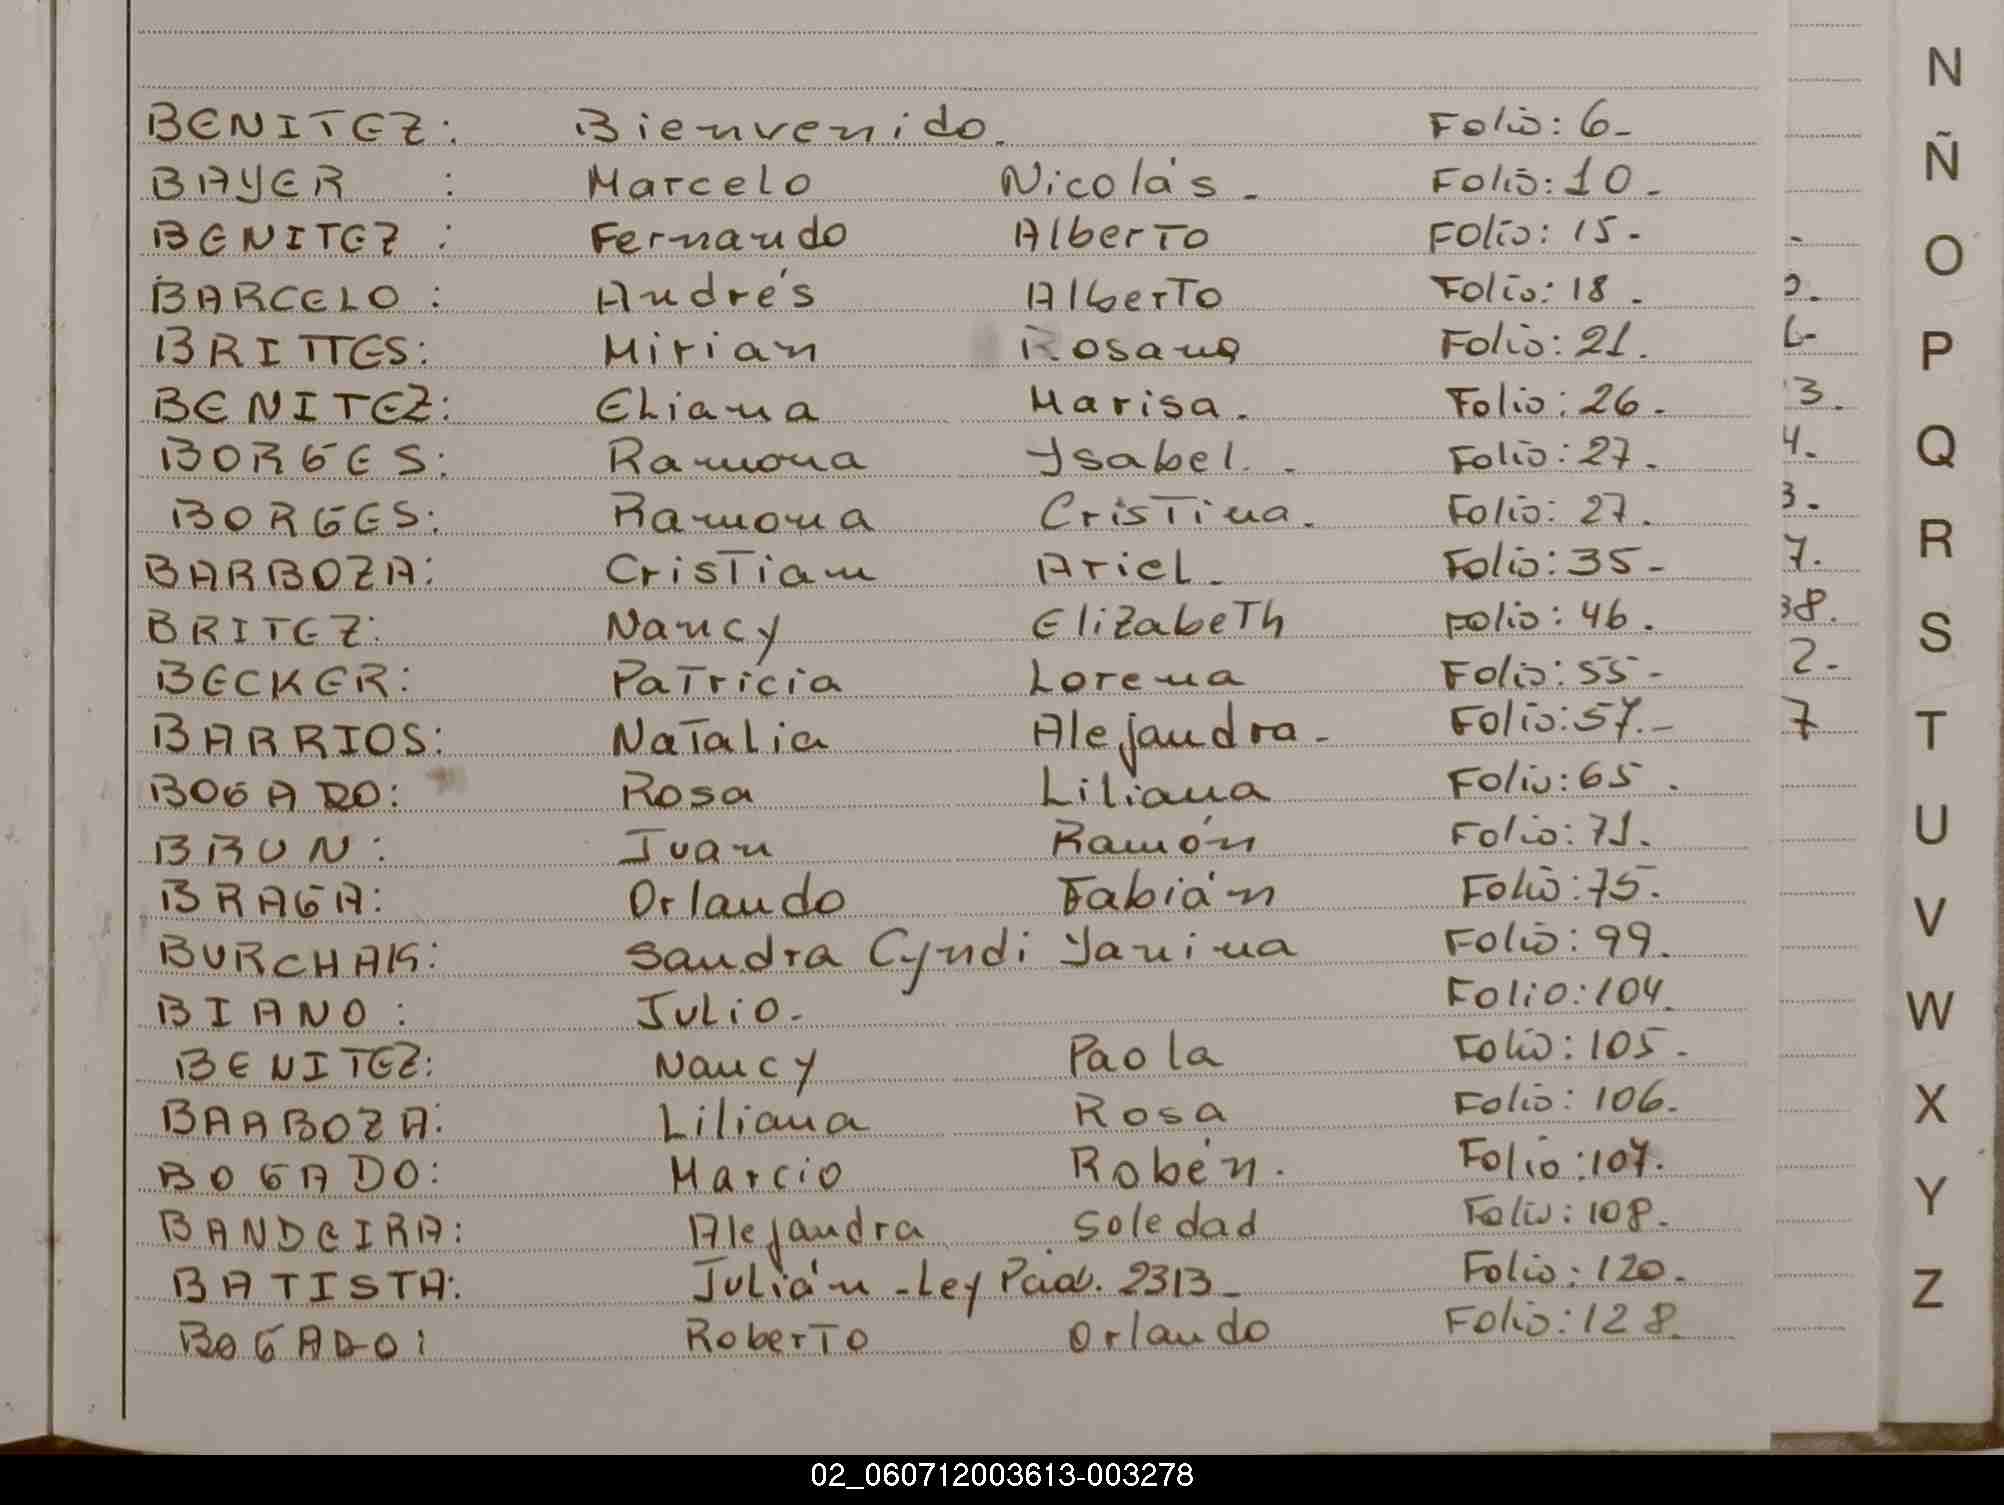 BENITEZ: Bienvenido. Folio: 6-
BAYER : Marcelo Nicolás - Folio: 10 -
BENITEZ : Fernando Alberto Folio: 15 -
BARCELO : Andrés Alberto Folio: 18 .
BRITTES: Mirian Rosana Folio: 21.
BENITEZ: Eliana Marisa. Folio: 26 .
BORGES: Ramona Ysabel. . Folio: 27 .
BORGES: Ramona Cristina. Folio: 27.
BARBOZA: Cristian Ariel. Folio: 35-
BRITEZ: Nancy Elizabeth Folio: 46 .
BECKER: Patricia Lorena Folio: 55 -
BARRIOS: Natalia Alejandra - Folio: 57.-
BOGADO: Rosa Liliana Folio: 65 .
BRUN : Juan Ramón Folio: 71.
BRAGA: Orlando Fabián Folio: 75.
BURCHAK: Sandra Cyndi Yanina Folio: 99.
BIANO : Julio. Folio: 104.
BENITEZ: Nancy Paola Folio: 105 -
BARBOZA: Liliana Rosa Folio: 106.
BOGADO: Marcio Robén. Folio: 107.
BANDEIRA: Alejandra Soledad Folio: 108.
BATISTA: Julián - Ley 2313 - Folio: 120.
BOGADO: Roberto Orlando Folio: 128.
N
Ñ
O
P
Q
R
S
T
U
V
W
X
Y
Z
02_060712003613-003278